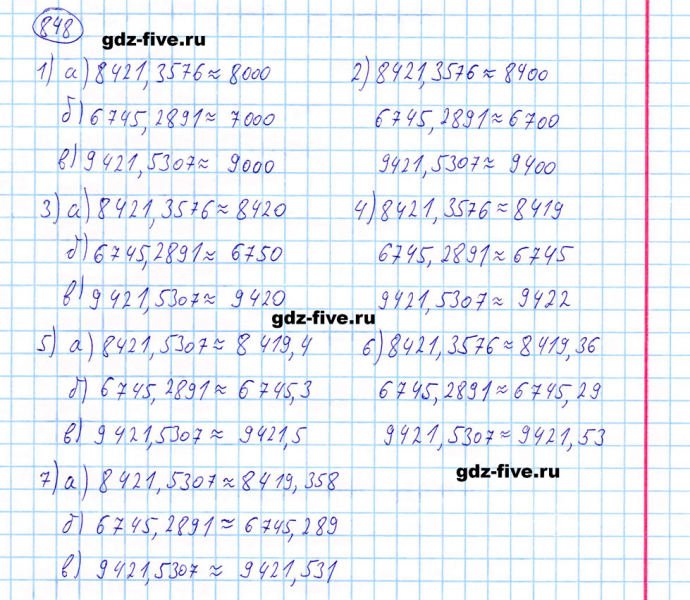 848
gdz-five.ru
1) а) 8421,3576 ≈ 8000
б) 6745,2891 ≈ 7000
в) 9421,5307 ≈ 9000
2) 8421,3576 ≈ 8400
6745,2891 ≈ 6700
9421,5307 ≈ 9400
3) а) 8421,3576 ≈ 8420
б) 6745,2891 ≈ 6750
в) 9421,5307 ≈ 9420
4) 8421,3576 ≈ 8419
6745,2891 ≈ 6745
9421,5307 ≈ 9422
gdz-five.ru
5) а) 8421,5307 ≈ 8419,4
б) 6745,2891 ≈ 6745,3
в) 9421,5307 ≈ 9421,5
6) 8421,3576 ≈ 8419,36
6745,2891 ≈ 6745,29
9421,5307 ≈ 9421,53
gdz-five.ru
7) а) 8421,5307 ≈ 8419,358
б) 6745,2891 ≈ 6745,289
в) 9421,5307 ≈ 9421,531